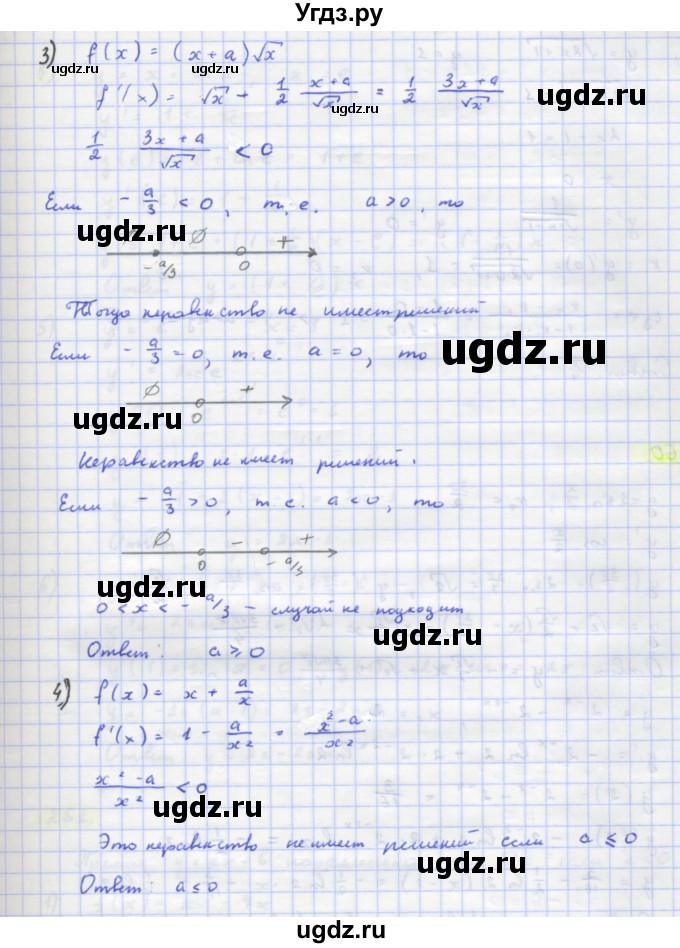 Угдз.ру
3) f(x) = (x+a)√x
ugdz.ru ugdz.ru
f'(x) = √x + 1/2 (x+a)/√x = 1/2 (3x+a)/√x
ugdz.ru
1/2 (3x+a)/√x < 0
Если -a/3 < 0, т.е. a>0, то
ugdz.ru ugdz.ru
∅ +
-a/3 0
Тогда неравенство не имеет решений
Если -a/3 = 0, т.е. a=0, то
ugdz.ru
∅ +
0
Неравенство не имеет решений.
Если -a/3 > 0, т.е. a<0, то
∅ - +
0 -a/3
ugdz.ru
0 < x < -a/3 - случай не подходит
ugdz.ru
Ответ: a ≥ 0
4) f(x) = x + a/x
f'(x) = 1 - a/x² = (x²-a)/x²
(x²-a)/x² < 0
ugdz.ru
Это неравенство не имеет решений если a ≤ 0
ugdz.ru
Ответ: a ≤ 0
ugdz.ru